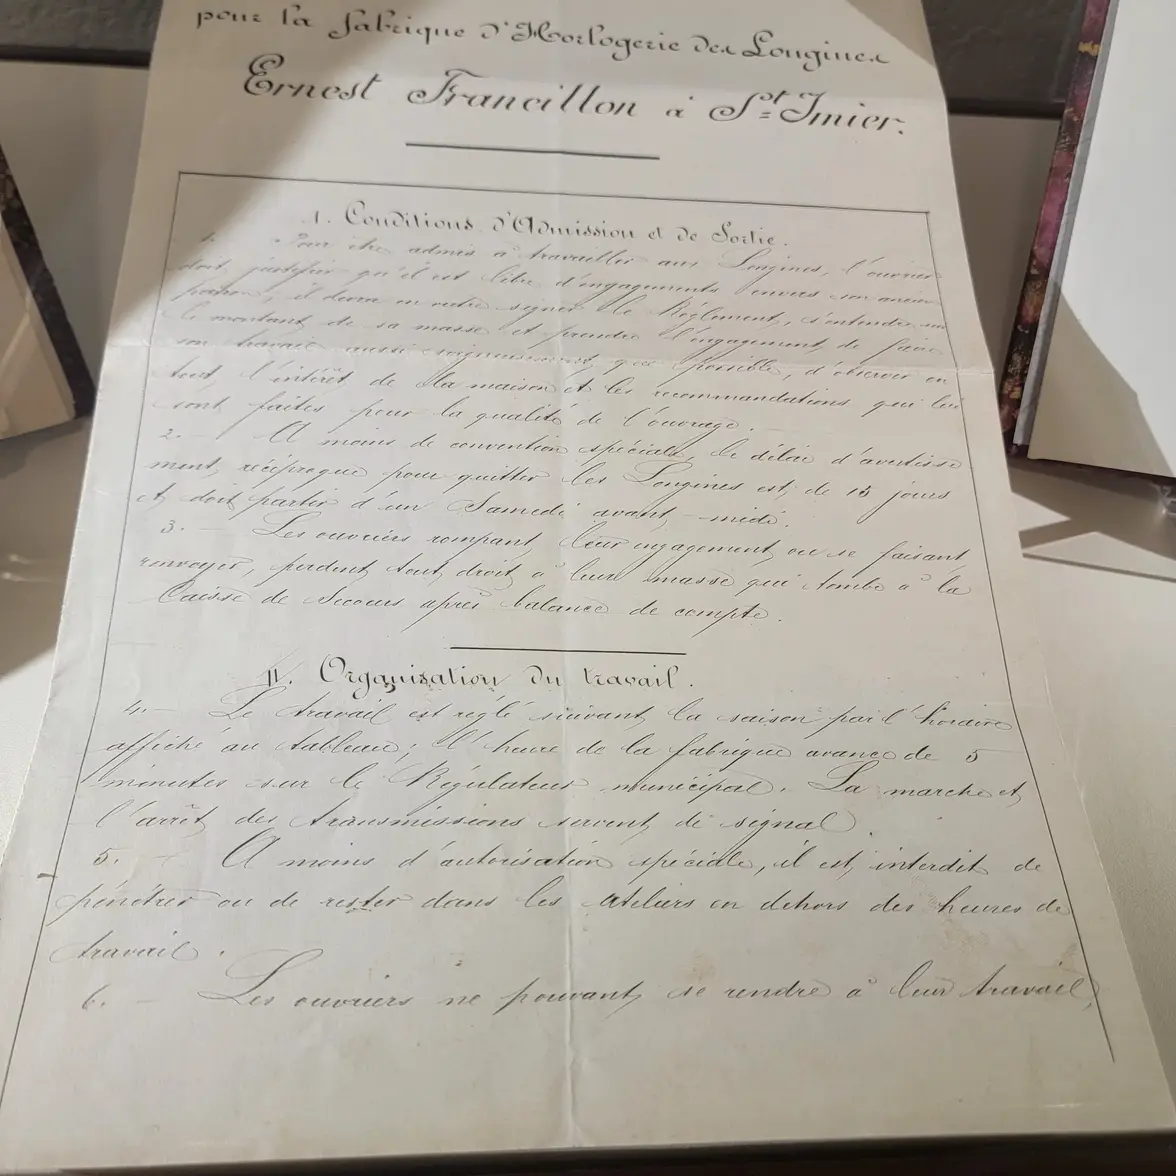 pour la fabrique d'Horlogerie des Longines
Ernest Francillon à St Imier.
1. Conditions d'Admission et de Sortie.
1. Pour être admis à travailler aux Longines, l'ouvrier
doit justifier qu'il est libre d'engagements envers son ancien
patron, il devra en outre signer le Règlement, s'entendre sur
le montant de sa masse et prendre l'engagement de faire
son travail aussi soigneusement que possible, d'observer en
tout, l'intérêt de la maison et les recommandations qui lui
sont faites pour la qualité de l'ouvrage.
2. — A moins de convention spéciale, le délai d'avertisse
ment, réciproque pour quitter les Longines est de 15 jours
et doit partir d'un Samedi avant-midi.
3. — Les ouvriers rompant leur engagement ou se faisant
renvoyer, perdent tout droit à leur masse qui tombe à la
Caisse de Secours après balance de compte.
II. Organisation du travail.
4. — Le travail est réglé suivant la saison par l'horaire
affiché au tableau; l'heure de la fabrique avance de 5
minutes sur le Régulateur municipal. La marche et
l'arrêt des transmissions servent de signal.
5. — A moins d'autorisation spéciale, il est interdit de
pénétrer ou de rester dans les ateliers en dehors des heures de
travail.
6. — Les ouvriers ne pouvant se rendre à leur travail,